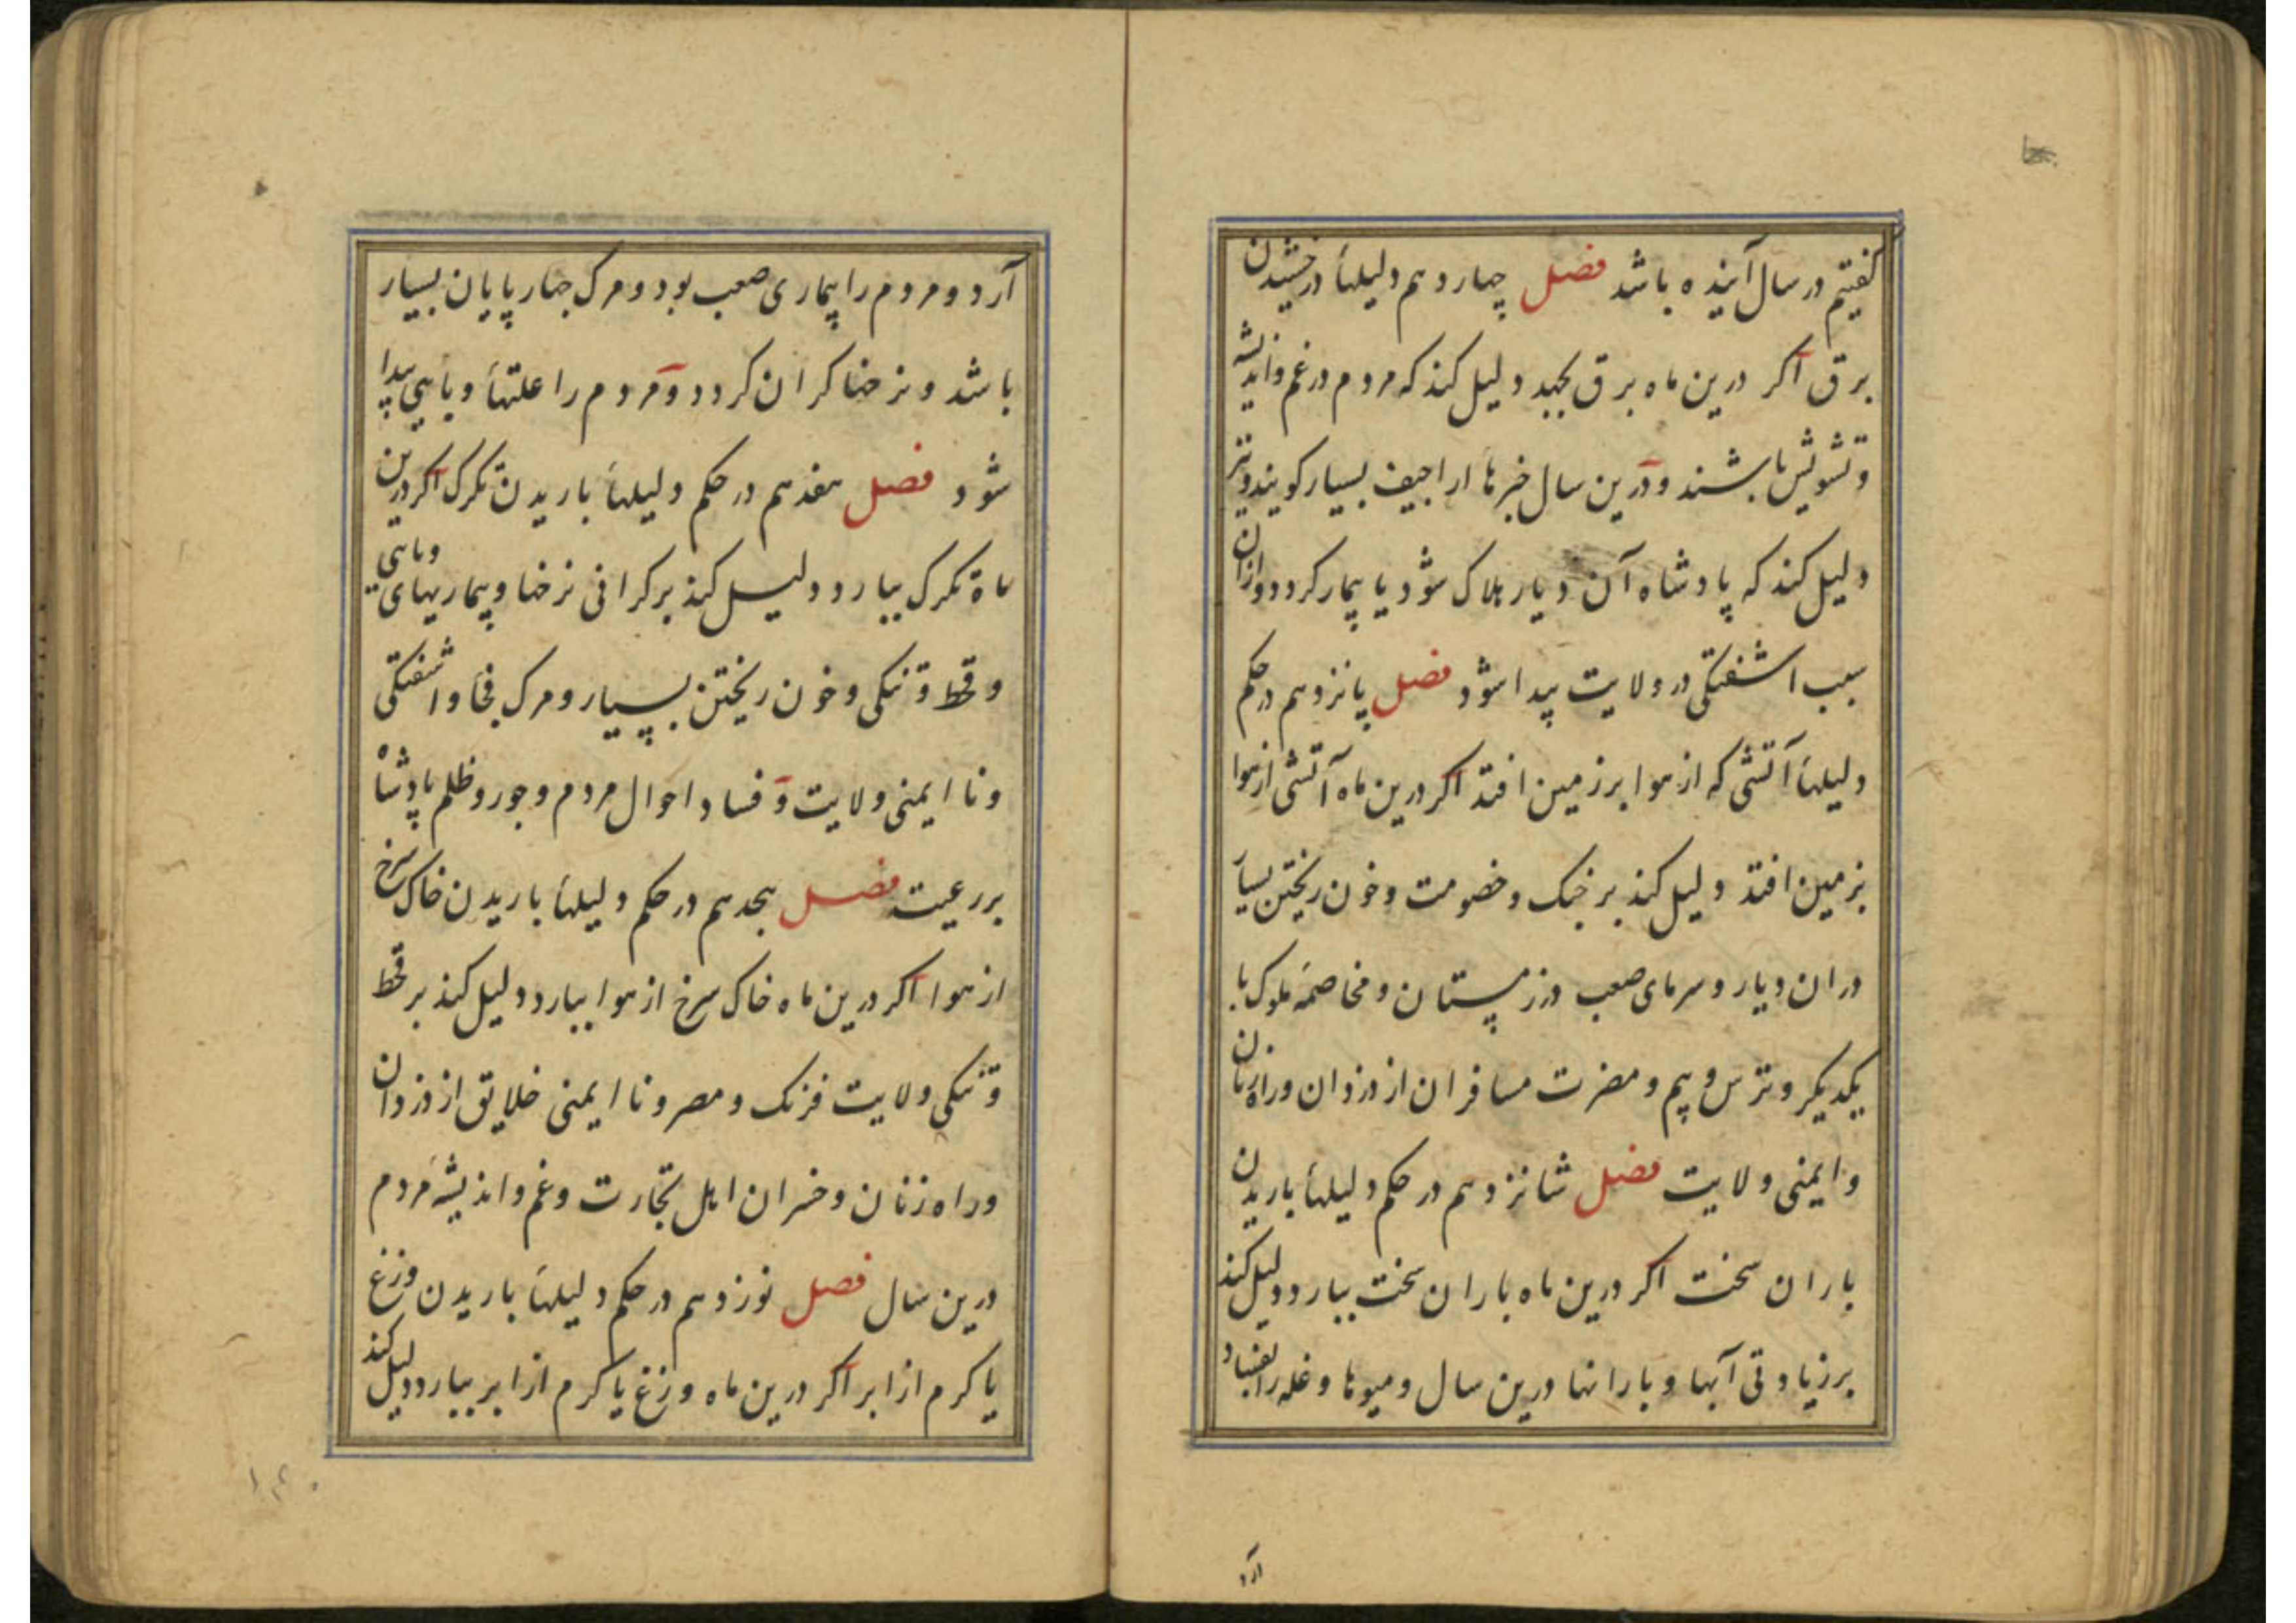 کفتیم در سال آینده باشد فصل چهاردهم دلیلهاء درخشیدن
برق اکر درین ماه برق بجهد دلیل کند که مردم در غم واندیشه
وتشویش باشند ودرین سال خبرها اراجیف بسیار کویند ونیز
دلیل کند که پادشاه آن دیار هلاک شود یا بیمار کردد وازان
سبب اشفتکی در ولایت پیدا شود فصل پانزدهم در حکم
دلیلهاء آتشی که از هوا بر زمین افتد اکر درین ماه آتشی از هوا
بزمین افتد دلیل کند بر جنک وخصومت وخون ریختن بسیار
دران دیار وسرمای صعب در زمستان ومخاصمه ملوک با
یکدیکر وترس وبیم ومضرت مسافران از دزدان وراه زنان
وایمنی ولایت فصل شانزدهم در حکم دلیلهاء باریدن
باران سخت اکر درین ماه باران سخت ببارد دلیل کند
بر زیادتی آبها وبارانها درین سال ومیوها وغله را بفساد
آرد
آرد ومردم را بیماری صعب بود ومرک چهارپایان بسیار
باشد ونرخها کران کردد ومردم را علتهاء وبایی پیدا
شود فصل هفدهم در حکم دلیلهاء باریدن تکرک اکر درین
ماه تکرک ببارد دلیل کند بر کرانی نرخها وبیماریهای وبایی
وقحط وتنکی وخون ریختن بسیار ومرک فجا واشفتکی
ونا ایمنی ولایت وفساد احوال مردم وجور وظلم پادشاه
بر رعیت فصل هجدهم در حکم دلیلهاء باریدن خاک سرخ
از هوا اکر درین ماه خاک سرخ از هوا ببارد دلیل کند بر قحط
وتنکی ولایت فرنک ومصر ونا ایمنی خلایق از دزدان
وراه زنان وخسران اهل تجارت وغم واندیشه مردم
درین سال فصل نوزدهم در حکم دلیلهاء باریدن وزغ
یا کرم از ابر اکر درین ماه وزغ یا کرم از ابر ببارد دلیل کند